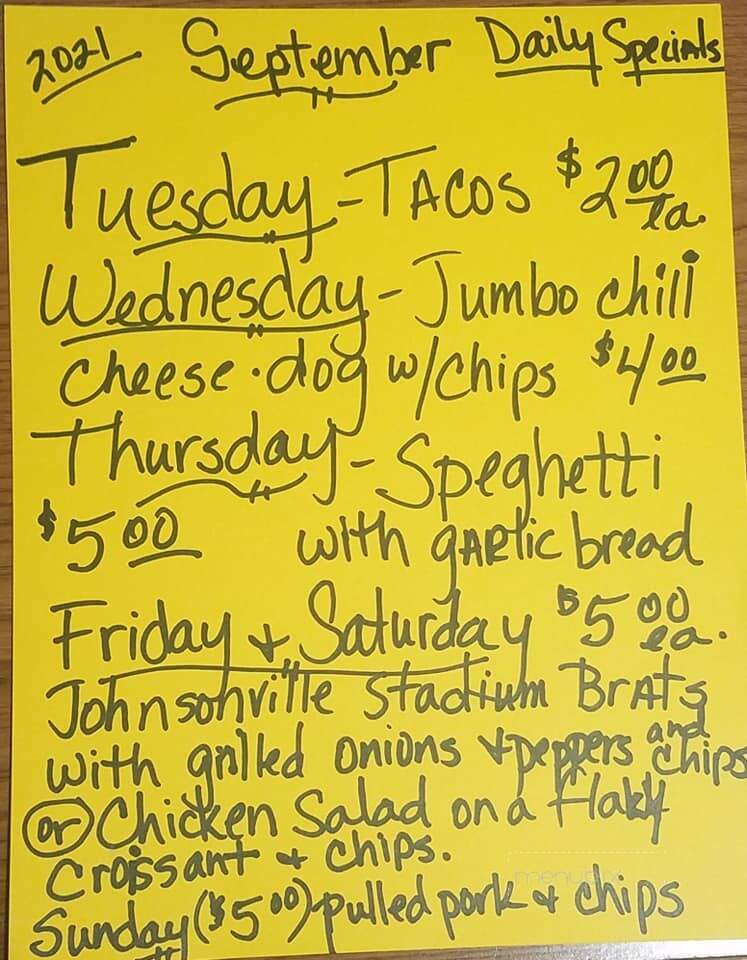 2021 September Daily Specials
Tuesday - TACOS $2.00 ea.
Wednesday - Jumbo chili
cheese • dog w/chips $4.00
Thursday - Speghetti
$5.00 with gARlic bread
Friday + Saturday $5.00 ea.
Johnsonville Stadium BrAts
with grilled onions + peppers and chips
(or) Chicken Salad on a Flaky
Croissant + chips.
Sunday ($5.00) pulled pork + chips
menupix